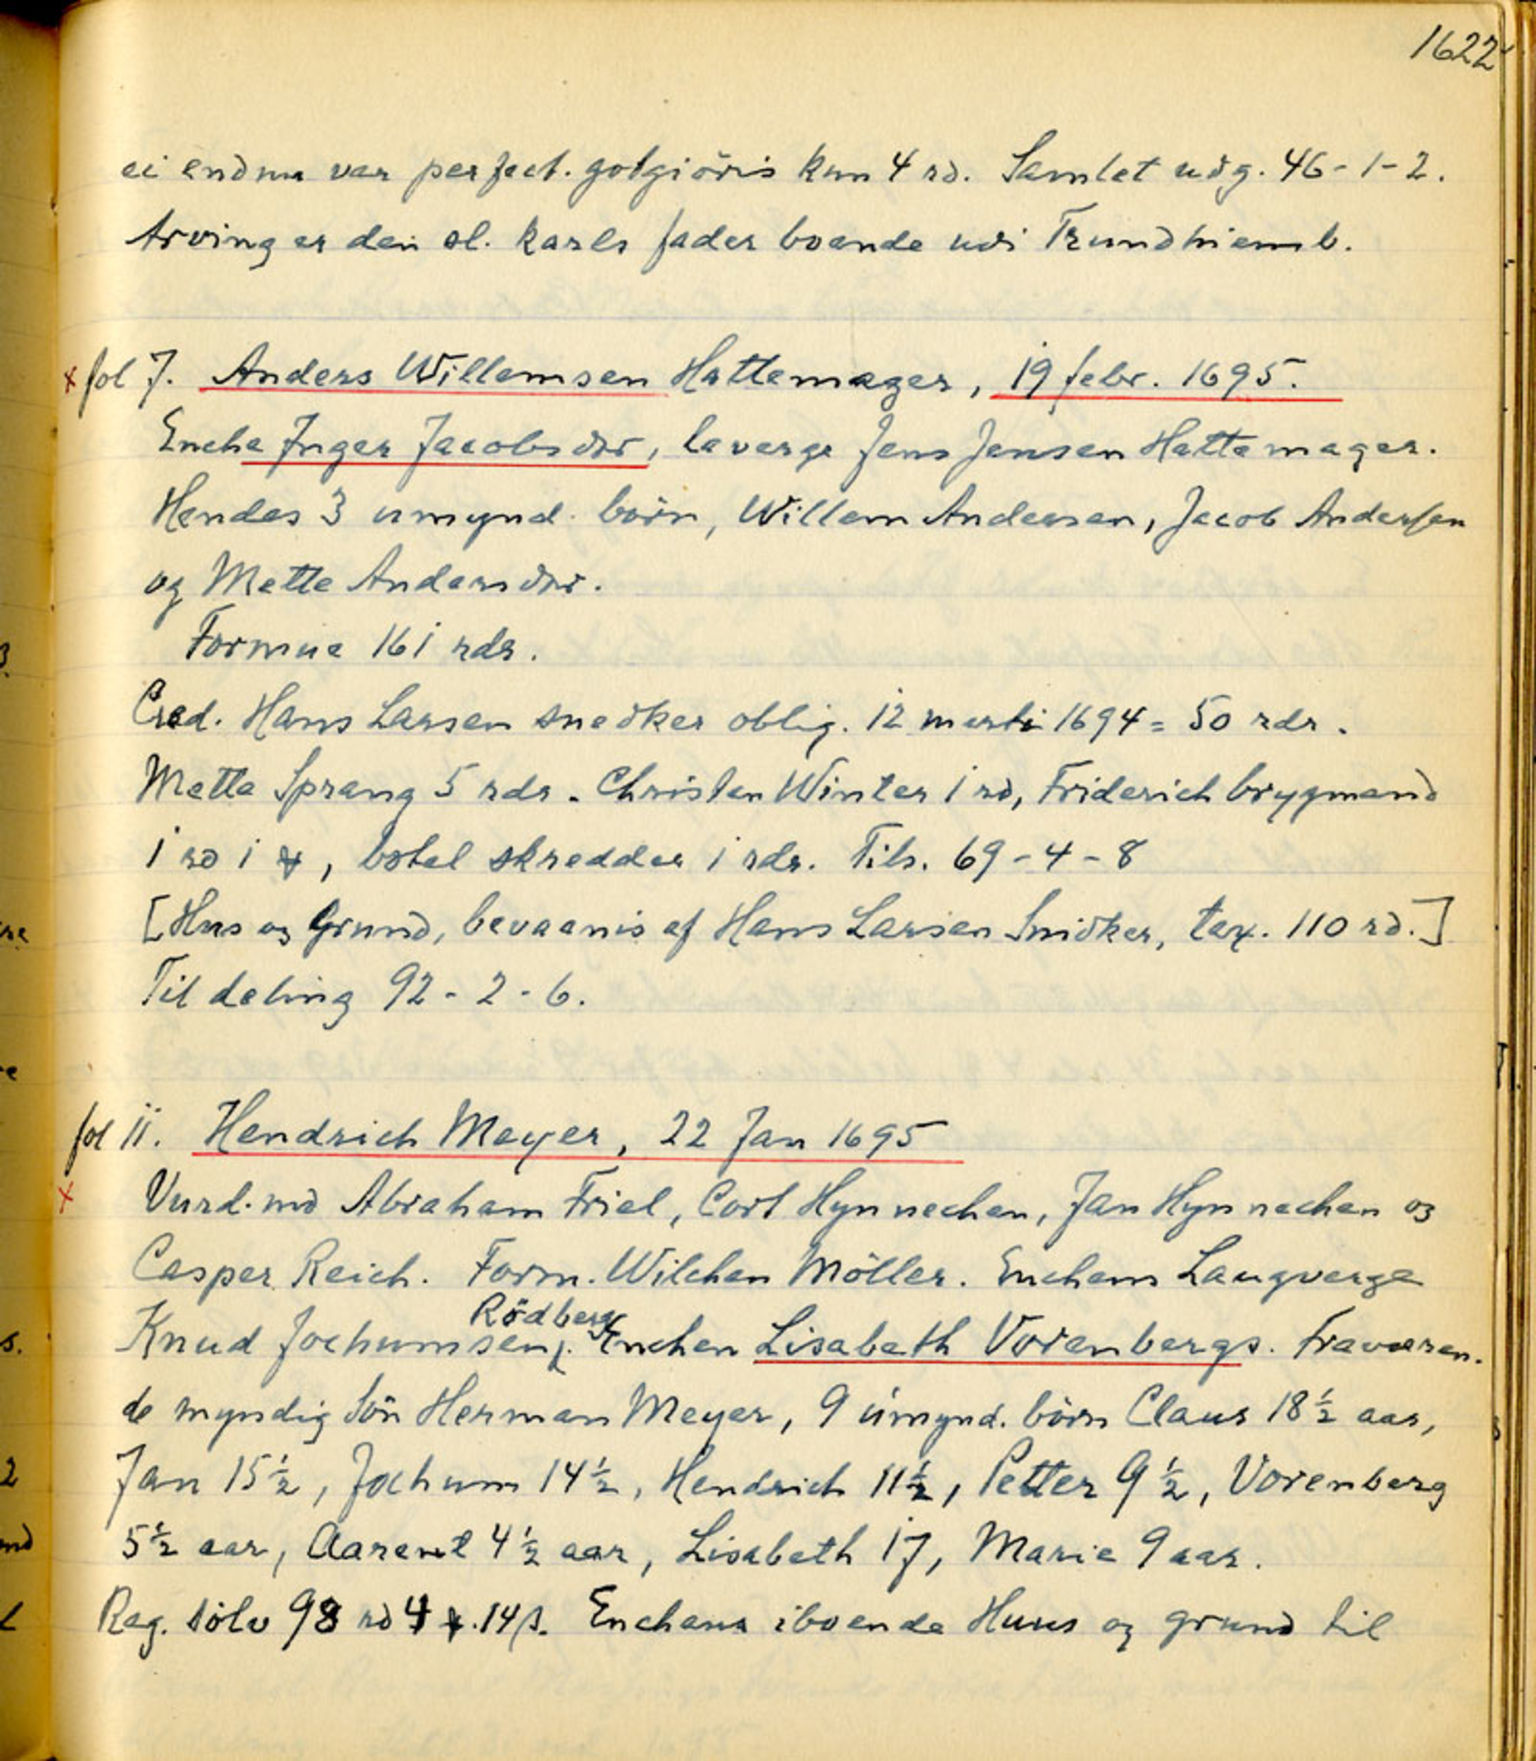 1622
ei endnu var perfect. gotgiöris kun 4 rd. Samlet udg. 46-1-2.
Arving er den sl. karls fader boende udi Trundhiemb.
x fol 7. Anders Willemsen Hattemager, 19 febr. 1695.
Enche Inger Jacobsdtr, laverge Jens Jensen Hattemager.
Hendes 3 umynd. börn, Willem Andersen, Jacob Andersen
og Mette Andersdtr.
Formue 161 rdr.
Cred. Hans Larsen snedker oblig. 12 marti 1694 = 50 rdr.
Mette Sprang 5 rdr. Christen Winter 1 rd, Friderich brygmand
1 rd 1 , botel skredder 1 rdr. Tils. 69-4-8
[Hus og Grund, bevaanis af Hans Larsen Snidker, tax. 110 rd.]
Til deling 92-2-6.
fol 11. Hendrich Meyer, 22 Jan 1695
x Vurd. md Abraham Friel, Cort Hynnechen, Jan Hynnechen og
Casper Reich. Form. Wilchen Möller. Enchens Laugverge
Rödberg
Knud Jochumsen. Enchen Lisabeth Vorenbergs. Fraværen-
de myndig Sön Herman Meyer, 9 umynd. börn Claus 18½ aar,
Jan 15½, Jochum 14½, Hendrich 11½, Petter 9½, Vorenberg
5½ aar, Aarent 4½ aar, Lisabeth 17, Marie 9 aar.
Reg. sölv 98 rd 4 . 14 β. Enchens iboende Huus og grund til